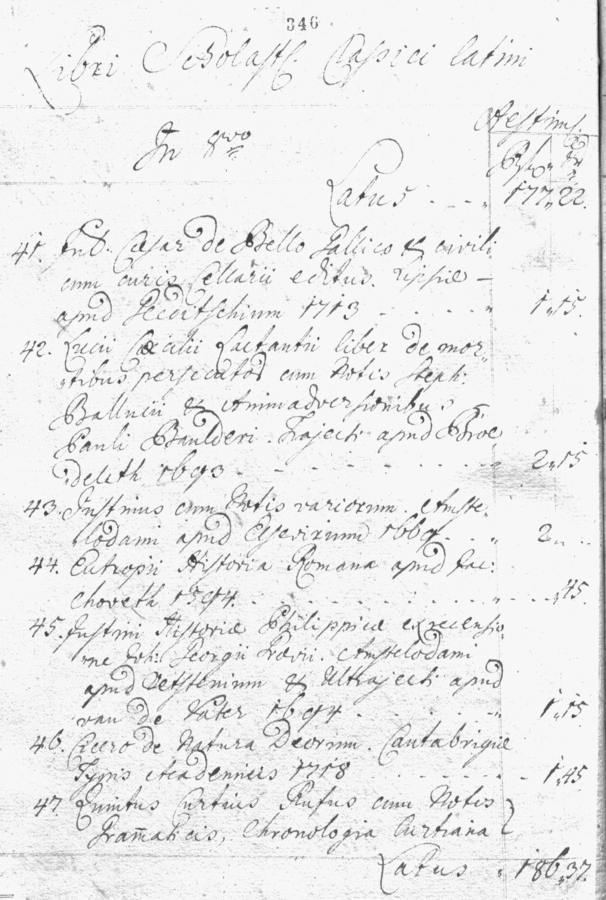 346
Libri Scholast. Classici latini
In 8vo
Aestim.
Latus - - - 177 „ 22.
41. Jul. Cæsar de Bello Gallico & civili
cum curis Cellarii editus. Lipsiæ -
apud Gleditschium 1713 - - - - - 1 „ 15.
42. Lucii Cæcilii Lactantii liber de mor„
„tibus persecutor cum Notis Steph:
Balluzii & Animadversionibus
Pauli Baulderi. Trajecti apud Broe
deleth 1693 - - - - - - - - 2 „ 15
43. Justinus cum Notis variorum. Amste„
lodami apud Elsevirium 1669. - „ 2 „ - .
44. Eutropii Historia Romana apud Jac:
Choveth 1594. - - - - - - - - - „ 45.
45. Justini Historiæ Philippicæ ex recensio„
ne Joh: Georgii Grævii. Amstelodami
apud Wetstenium & Ultrajecti apud
van de Water 1694 - - - - - 1 „ 15
46. Cicero de Natura Deorum. Cantabrigiæ
Typis Academicis 1718 - - - - - 1 „ 45
47. Quintus Curtius Rufus cum Notis
Gram̃aticis, Chronologia Curtiana
Latus „ 186 „ 37.